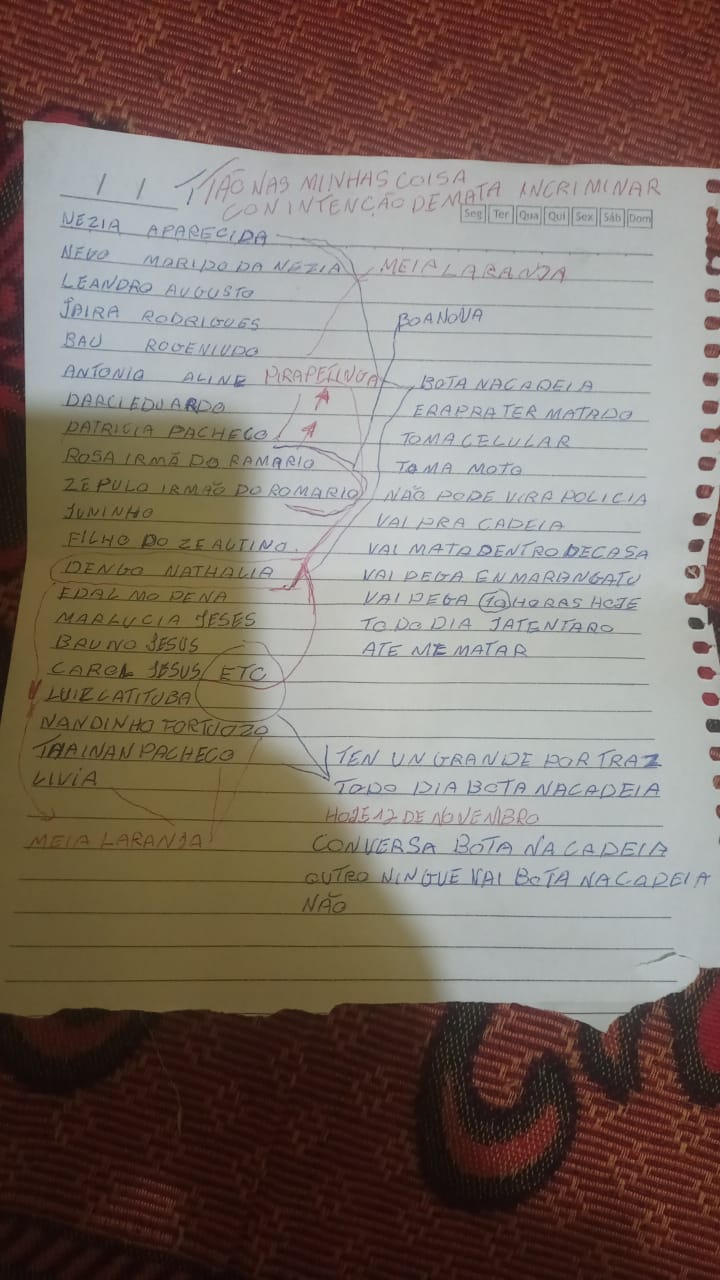 / / TÃO NAS MINHAS COISA
CON INTENÇÃO DE MATA INCRIMINAR
Seg Ter Qua Qui Sex Sáb Dom
NEZIA APARECIDA
NEVO MARIDO DA NEZIA MEIA LARANJA
LEANDRO AUGUSTO
JAIRA RODRIGUES BOANOVA
BAU ROGENIUDO
ANTONIO ALINE PIRAPETINGA BOTA NA CADEIA
DARCI EDUARDO ERA PRA TER MATADO
PATRICIA PACHECO TOMA CELULAR
ROSA IRMÃ DO RAMARIO TOMA MOTO
ZE PULO IRMÃO DO ROMARIO NÃO PODE VIRA POLICIA
JUNINHO VAI PRA CADEIA
FILHO DO ZE ALTINO VAI MATA DENTRO DE CASA
DENGO NATHALIA VAI PEGA EN MARANGATU
EDALMO PENA VAI PEGA 10 HORAS HOJE
MARLUCIA JESES TODO DIA JA TENTARO
BRUNO JESUS ATE ME MATAR
CAROL JESUS ETC
LUIZ CATITUBA
NANDINHO FORTUOZO
THAINAN PACHECO TEN UN GRANDE POR TRAZ
LIVIA TODO DIA BOTA NA CADEIA
HOJE 12 DE NOVEMBRO
MEIA LARANJA CONVERSA BOTA NA CADEIA
OUTRO NINGUE VAI BOTA NA CADEIA
NÃO